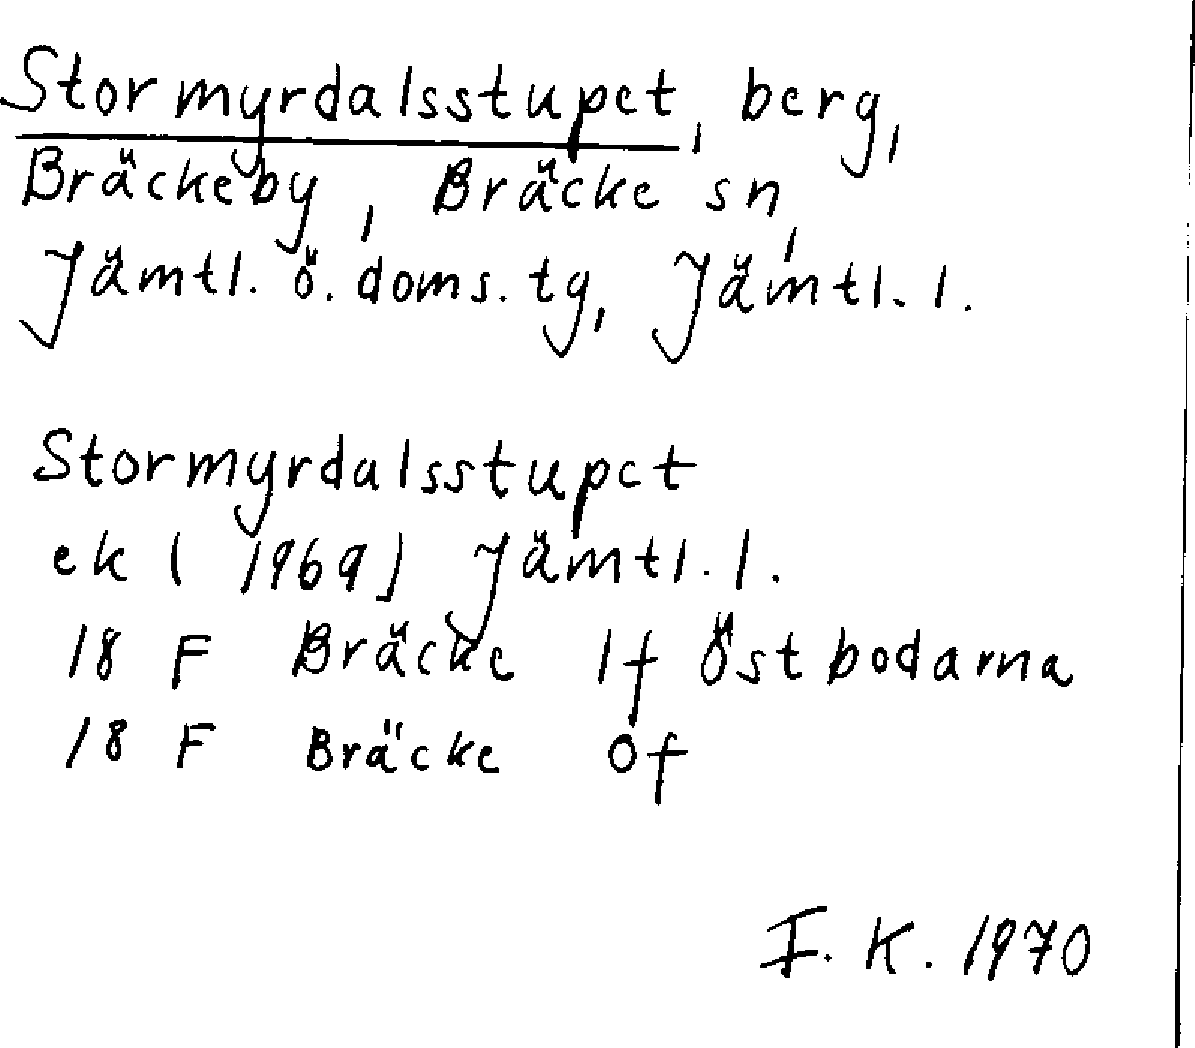 Stormyrdalsstupet, berg,
Bräckeby, Bräcke sn,
Jämtl. ö. doms. tg, Jämtl. l.
Stormyrdalsstupet
ek (1969) Jämtl. l.
18 F Bräcke 1f Östbodarna
18 F Bräcke 0f
F. K. 1970